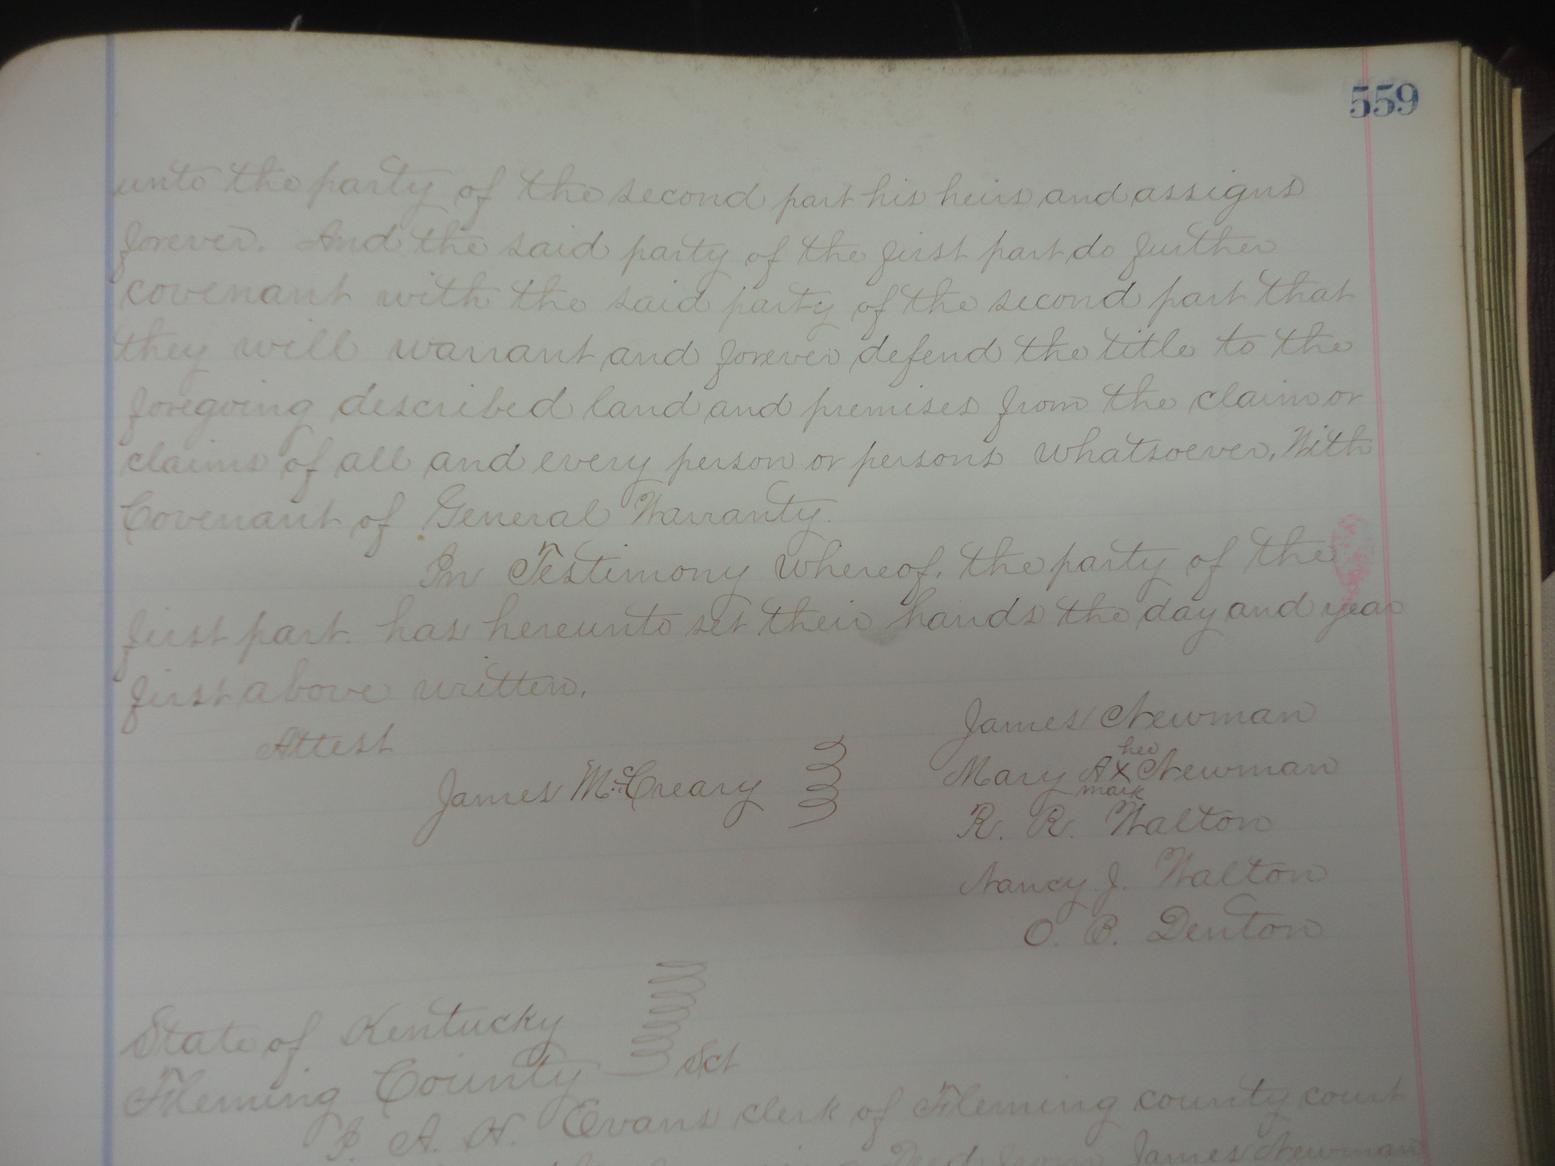 559
unto the party of the second part his heirs and assigns
forever. And the said party of the first part do further
covenant with the said party of the second part that
they will warrant and forever defend the title to the
foregoing described land and premises from the claim or
claims of all and every person or persons whatsoever, With
Covenant of General Warranty.
In Testimony whereof, the party of the
first part. has hereunto set their hands the day and year
first above written.
James Newman
Attest
her
James McCreary Mary A X Newman
mark
R. R. Walton
Nancy J. Walton
O. B. Denton
State of Kentucky
Fleming County Sct
I. A. H. Evans clerk of Fleming county court
Deed from James Newman